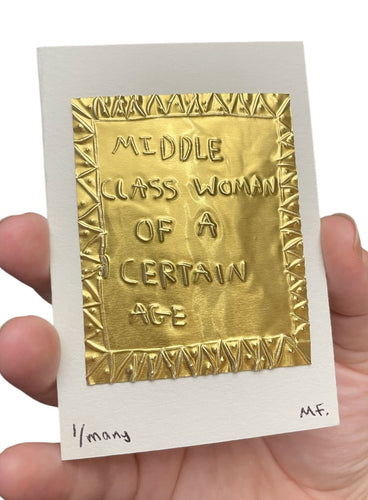 MIDDLE
CLASS WOMAN
OF A
CERTAIN
AGE
1/many
M.F.